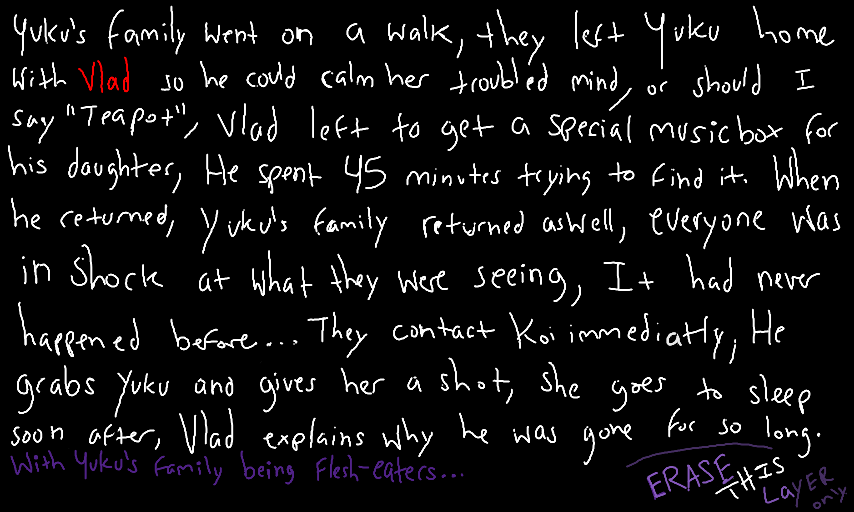 Yuku's family went on a walk, they left Yuku home
with Vlad so he could calm her troubled mind, or should I
say "Teapot", Vlad left to get a special music box for
his daughter, He spent 45 minutes trying to find it. When
he returned, Yuku's family returned aswell, everyone was
in Shock at what they were seeing, It had never
happened before... They contact Koi immediatly, He
grabs Yuku and gives her a shot, she goes to sleep
soon after, Vlad explains why he was gone for so long.
With Yuku's Family being Flesh-eaters...
ERASE THIS
LAYER
only